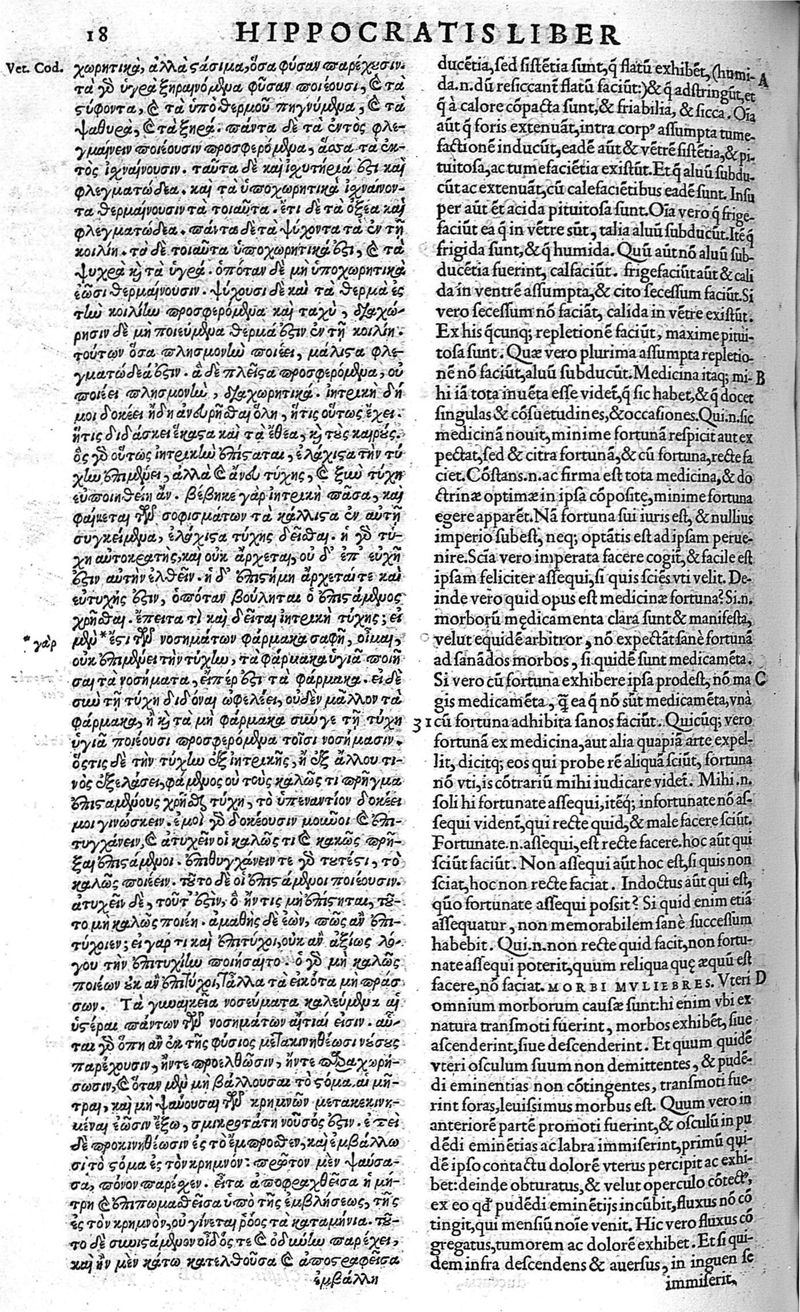 18 HIPPOCRATIS LIBER
Vet. Cod.
χωρητικὰ, ἀλλὰ στάσιμα, ὅσα φύσαν παρέχουσιν.
τὰ γὸ ὑγρὰ ξηραινόμενα φῦσαν ποιέουσι, & τὰ
στύφοντα, & τὰ ὑπὸ θερμοῦ πηγνύμενα, & τὰ
ψαθυρὰ, & τὰ ξηρά. πάντα δὲ τὰ ἐντὸς φλε-
γμαίνειν ποιέουσι προσφερόμενα, ἅσσα τὰ ἐκ-
τὸς ἰχναίνουσιν. ταῦτα δὲ καὶ ἰσχυτήριά ἐστι καὶ
φλεγματώδεα. καὶ τὰ ὑποχωρητικὰ ἰχνάνον-
τα θερμαίνουσιν τὰ τοιαῦτα. ἔτι δὲ τὰ ὀξέα καὶ
φλεγματώδεα. πάντα δὲ τὰ ψύχοντα τὰ ἐν τῇ
κοιλίῃ. τὰ δὲ τοιαῦτα ὑποχωρητικά ἐστι, & τὰ
ψυχρὰ κ̀ τὰ ὑγρά. ὁπόταν δὲ μὴ ὑποχωρητικὰ
ἔωσι θερμαίνουσιν. ψύχουσι δὲ καὶ τὰ θερμὰ ἐς
τὴν κοιλίην προσφερόμενα καὶ ταχὺ, διαχώ-
ρησιν δὲ μὴ ποιεύμενα θερμά ἐστιν ἐν τῇ κοιλίῃ.
τούτων ὅσα πλησμονὴν ποιέει, μάλιστα φλε-
γματώδεά ἐστιν. ἃ δὲ πλεῖστα προσφερόμενα, οὐ
ποιέει πλησμονὴν, διαχωρητικά. ἰητρικὴ δή
μοι δοκέει ἤδη ἀνευρῆσθαι ὅλη, ἥτις οὕτως ἔχει.
ἥτις διδάσκει ἕκαστα καὶ τὰ ἔθεα, κ̀ τοὺς καιρούς.
ὃς γὸ οὕτως ἰητρικὴν ἐπίσταται, ἐλάχιστα τὴν τύ-
χην ἐπιμένει, ἀλλὰ & ἄνευ τύχης, & ξὺν τύχῃ
εὐποιηθείη ἄν. βέβηκε γὰρ ἰητρικὴ πᾶσα, καὶ
φαίνεται τῶν σοφισμάτων τὰ κάλλιστα ἐν αὐτῇ
συγκείμενα, ἐλάχιστα τύχης δεῖσθαι. ἡ γὸ τύ-
χη αὐτοκρατὴς, καὶ οὐκ ἄρχεται, οὐ δ' ἐπ' εὐχῇ
ἐστιν αὐτὴν ἐλθεῖν. ἡ δ' ἐπιστήμη ἄρχεταί τε καὶ
εὐτυχής ἐστιν, ὁπόταν βούληται ὁ ἐπιστάμενος
χρῆσθαι. ἔπειτα τί καὶ δεῖται ἰητρικὴ τύχης; εἰ
*γὰρ
μὲν *ἔστι τῶν νοσημάτων φάρμακα σαφῆ, οἶμαι,
οὐκ ἐπιμένει τὴν τύχην, τὰ φάρμακα ὑγιᾶ ποιῆ-
σαι τὰ νοσήματα, εἴπερ ἐστὶ τὰ φάρμακα. εἰ δὲ
σὺν τῇ τύχῃ διδόναι ὠφελέει, οὐδὲν μᾶλλον τὰ
φάρμακα, ἢ κ̀ τὰ μὴ φάρμακα σύν γε τῇ τύχῃ
ὑγιᾶ ποιέουσι προσφερόμενα τοῖσι νοσήμασιν.
ὅστις δὲ τὴν τύχην ἐξ ἰητρικῆς, ἢ ἐξ ἄλλου τι-
νὸς ἐξελάσει, φάμενος οὐ τοὺς καλῶς τι πρῆγμα
ἐπισταμένους χρῆσθαι τύχῃ, τὸ ὑπεναντίον δοκέει
μοι γινώσκειν. ἐμοὶ γὸ δοκέουσιν μοῦνοι & ἐπι-
τυγχάνειν, & ἀτυχεῖν οἱ καλῶς τι & κακῶς πρῆ-
ξαι ἐπιστάμενοι. ἐπιτυγχάνειν τε γὸ τοῦτ' ἐστι, τὸ
καλῶς ποιέειν. τοῦτο δὲ οἱ ἐπιστάμενοι ποιέουσιν.
ἀτυχεῖν δὲ, τοῦτ' ἐστιν, ὃ ἤν τις μὴ ἐπίστηται, τοῦ-
το μὴ καλῶς ποιέῃ. ἀμαθὴς δὲ ἐὼν, πῶς ἂν ἐπι-
τύχοιεν; εἰ γάρ τι καὶ ἐπιτύχοι, οὐκ ἂν ἀξίως λό-
γου τὴν ἐπιτυχίην ποιήσαιτο. ὁ γὸ μὴ καλῶς
ποιέων ὐκ ἂν ἐπιτύχοι, τἆλλα τὰ εἰκότα μὴ πράσ-
σων. Τὰ γυναικεῖα νοσεύματα καλεύμενα αἱ
ὑστέραι πάντων τῶν νοσημάτων αἴτιαί εἰσιν. αὗ-
ται γὸ ὅπη ἂν ἐκ τῆς φύσιος μετακινηθέωσι νούσους
παρέχουσιν, ἤν τε προελθῶσιν, ἤν τε παραχωρή-
σωσιν, & ὅταν μὲν μὴ βάλλουσαι τὸ στόμα αἱ μῆ-
τραι, καὶ μὴ ψαύουσαι τῶν κρημνῶν μετακεκινη-
μέναι ἐῶσιν ἔξω, σμικροτάτη νοῦσός ἐστιν. ἐπεὶ
δὲ προκινηθέωσιν ἐς τὸ ἔμπροσθεν, καὶ ἐμβάλλω
σι τὸ στόμα ἐς τὸν κρημνόν: πρῶτον μὲν ψαύσα-
σα, πόνον παρέχεν. εἶτα ἀποφραχθεῖσα ἡ μή-
τρη & ἐπιπωμαθεῖσα ὑπὸ τῆς ἐμβλήσεως, τῆς
ἐς τὸν κρημνὸν, οὐ γίνεται ῥόος τὰ καταμήνια. τοῦ-
το δὲ συνιστάμενον οἶδός τε & ὀδύνην παρέχει.
καὶ ἢν μὲν κάτω κατελθοῦσα & ἀποστραφεῖσα
ἐμβάλλῃ
ducētia, sed sistētia sunt, q̄ flatū exhibēt, (humi-
da.n. dū resiccant flatū faciūt:) & q̄ adstringūt, et
q̄ à calore cōpacta sunt, & friabilia, & sicca. Oīa
aūt q̄ foris extenuāt, intra corp⁹ assumpta tume-
factionē inducūt, eadē aūt & vētrē sistētia, & pi-
tuitosa, ac tumefaciētia existūt. Et q̄ aluū subdu-
cūt ac extenuāt, cū calefaciētibus eadē sunt. Insu
per aūt et acida pituitosa sunt. Oīa vero q̄ frige-
faciūt ea q̄ in vētre sūt, talia aluū subducūt. Itē q̄
frigida sunt, & q̄ humida. Quū aūt nō aluū sub-
ducētia fuerint, calfaciūt. frigefaciūt aūt & cali
da in ventrē assumpta, & cito secessum faciūt. Si
vero secessum nō faciāt, calida in vētre existūt.
Ex his q̄cunq; repletionē faciūt, maxime pitui-
tosa sunt. Quæ vero plurima assumpta repletio-
nē nō faciūt, aluū subducūt. Medicina itaq; mi-
hi iā tota inuēta esse videt̄, q̄ sic habet, & q̄ docet
singulas & cōsuetudines, & occasiones. Qui.n. sic
medicinā nouit, minime fortunā respicit aut ex
pectat, sed & citra fortunā, & cū fortuna, recte fa
ciet. Cōstans.n. ac firma est tota medicina, & do
ctrinæ optimæ in ipsa cōpositę, minime fortuna
egere apparēt. Nā fortuna sui iuris est, & nullius
imperio subest, neq; optātis est ad ipsam perue-
nire. Scīa vero imperata facere cogit, & facile est
ipsam feliciter assequi, si quis sciēs vti velit. De-
inde vero quid opus est medicinæ fortuna? Si.n.
morborū medicamenta clara sunt & manifesta,
velut equidē arbitror, nō expectāt sanè fortunā
ad sanādos morbos, si quidē sunt medicamēta.
Si vero cū fortuna exhibere ipsa prodest, nō ma
gis medicamēta, q̄ ea q̄ nō sūt medicamēta, vnà
31 cū fortuna adhibita sanos faciūt. Quicūq; vero
fortunā ex medicina, aut alia quapiā arte expel-
lit, dicitq; eos qui probe rē aliquā sciūt, fortuna
nō vti, is cōtrariū mihi iudicare videt̄. Mihi.n.
soli hi fortunate assequi, itēq; infortunate nō as-
sequi vident̄, qui recte quid, & male facere sciūt.
Fortunate.n. assequi, est recte facere. hoc aūt qui
sciūt faciūt. Non assequi aūt hoc est, si quis non
sciat, hoc non recte faciat. Indoctus aūt qui est,
quo fortunate assequi possit? Si quid enim etiā
assequatur, non memorabilem sanè successum
habebit. Qui.n. non recte quid facit, non fortu-
nate assequi poterit, quum reliqua quę æquū est
facere, nō faciat. MORBI MVLIEBRES. Vteri
omnium morborum causæ sunt: hi enim vbi ex
natura transmoti fuerint, morbos exhibēt, siue
ascenderint, siue descenderint. Et quum quidē
vteri osculum suum non demittentes, & pudē-
di eminentias non cōtingentes, transmoti fue-
rint foras, leuissimus morbus est. Quum vero in
anteriorē partē promoti fuerint, & osculū in pu
dēdi eminētias ac labra immiserint, primū qui-
dē ipso contactu dolorē vterus percipit ac exhi-
bet: deinde obturatus, & velut operculo cōtect⁹,
ex eo qđ pudēdi eminētijs incūbit, fluxus nō cō
tingit, qui mensiū noīe venit. Hic vero fluxus cō
gregatus, tumorem ac dolorē exhibet. Et si qui-
dem infra descendens & auersus, in inguen se
immiserit,
A
B
C
D